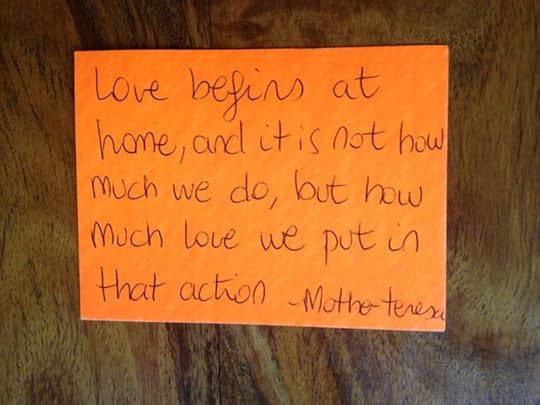 Love begins at
home, and it is not how
much we do, but how
much love we put in
that action -Mother teresa